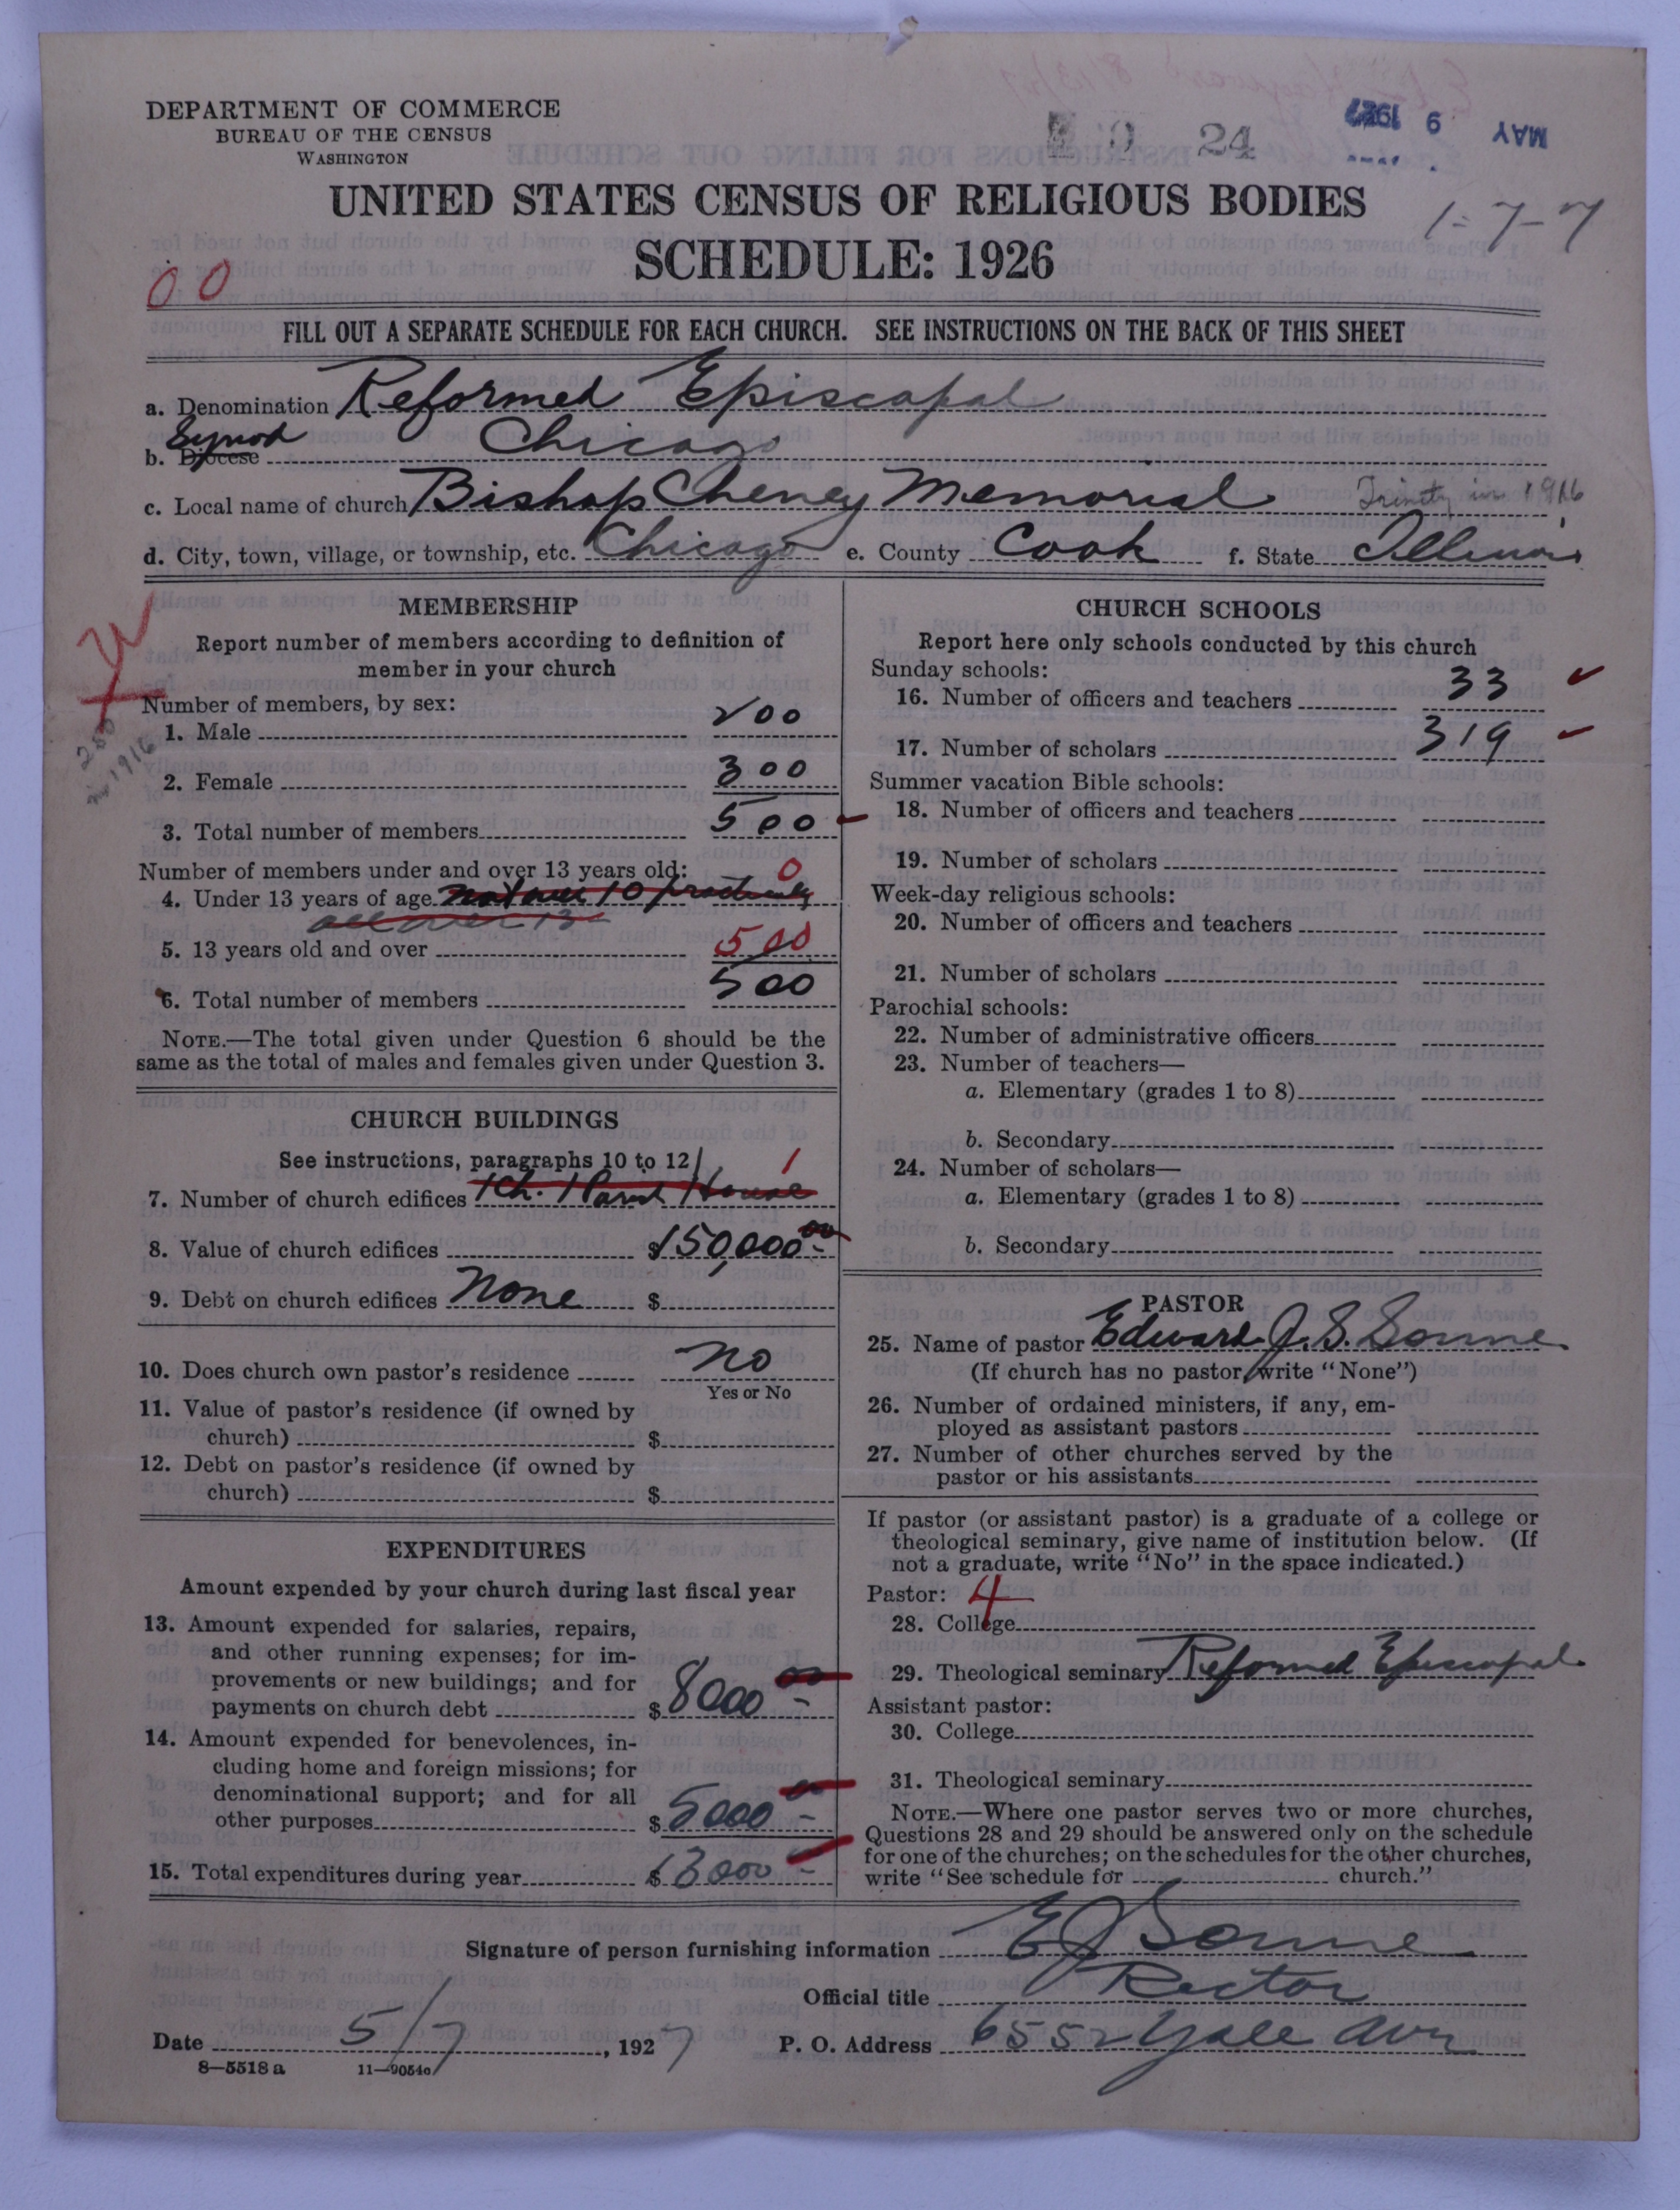 DEPARTMENT OF COMMERCE
BUREAU OF THE CENSUS
WASHINGTON
24
MAY 9 1927
UNITED STATES CENSUS OF RELIGIOUS BODIES
1-7-7
SCHEDULE: 1926
00
FILL OUT A SEPARATE SCHEDULE FOR EACH CHURCH. SEE INSTRUCTIONS ON THE BACK OF THIS SHEET
a. Denomination Reformed Episcopal
b. Diocese Synod Chicago
c. Local name of church Bishop Cheney Memorial Trinity in 1916
d. City, town, village, or township, etc. Chicago e. County Cook f. State Illinois
MEMBERSHIP
Report number of members according to definition of
member in your church
Number of members, by sex:
1. Male 200
in 1916
2. Female 300
3. Total number of members 500
Number of members under and over 13 years old:
0
4. Under 13 years of age not over 10 practically
all over 13
5. 13 years old and over 500
6. Total number of members 500
NOTE.—The total given under Question 6 should be the
same as the total of males and females given under Question 3.
CHURCH BUILDINGS
See instructions, paragraphs 10 to 12
1
7. Number of church edifices 1 Ch. 1 Parish House
8. Value of church edifices $150,000.00
9. Debt on church edifices None $
10. Does church own pastor's residence No
Yes or No
11. Value of pastor's residence (if owned by
church) $
12. Debt on pastor's residence (if owned by
church) $
EXPENDITURES
Amount expended by your church during last fiscal year
13. Amount expended for salaries, repairs,
and other running expenses; for im-
provements or new buildings; and for
payments on church debt $8000 00
14. Amount expended for benevolences, in-
cluding home and foreign missions; for
denominational support; and for all
other purposes $5000 00
15. Total expenditures during year $13000
CHURCH SCHOOLS
Report here only schools conducted by this church
Sunday schools:
16. Number of officers and teachers 33
17. Number of scholars 319
Summer vacation Bible schools:
18. Number of officers and teachers
19. Number of scholars
Week-day religious schools:
20. Number of officers and teachers
21. Number of scholars
Parochial schools:
22. Number of administrative officers
23. Number of teachers—
a. Elementary (grades 1 to 8)
b. Secondary
24. Number of scholars—
a. Elementary (grades 1 to 8)
b. Secondary
PASTOR
25. Name of pastor Edward J. S. Sonne
(If church has no pastor, write "None")
26. Number of ordained ministers, if any, em-
ployed as assistant pastors
27. Number of other churches served by the
pastor or his assistants
If pastor (or assistant pastor) is a graduate of a college or
theological seminary, give name of institution below. (If
not a graduate, write "No" in the space indicated.)
Pastor: 4
28. College
29. Theological seminary Reformed Episcopal
Assistant pastor:
30. College
31. Theological seminary
NOTE.—Where one pastor serves two or more churches,
Questions 28 and 29 should be answered only on the schedule
for one of the churches; on the schedules for the other churches,
write "See schedule for church."
Signature of person furnishing information E J Sonne
Official title Rector
Date 5/7, 1927 P. O. Address 6552 Yale Ave
8-5518 a 11-9054c